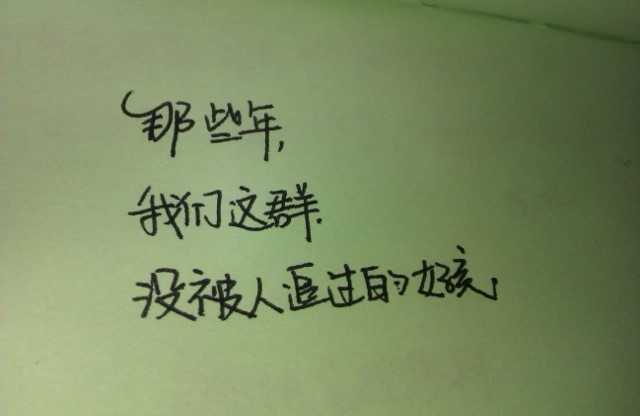 那些年,
我们这群.
没被人追过的女孩」